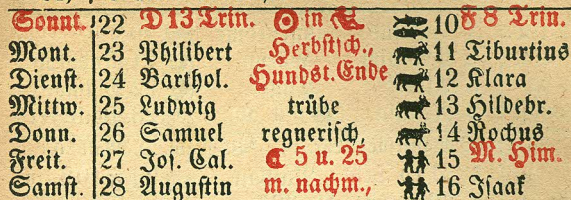 Sonnt. 22 D 13 Trin. ☉ in 10 F 8 Trin.
Mont. 23 Philibert Herbstsch., 11 Tiburtius
Dienst. 24 Barthol. Hundst. Ende 12 Klara
Mittw. 25 Ludwig trübe 13 Hildebr.
Donn. 26 Samuel regnerisch, 14 Rochus
Freit. 27 Jos. Cal. ☾ 5 u. 25 15 M. Him.
Samst. 28 Augustin m. nachm., 16 Isaak